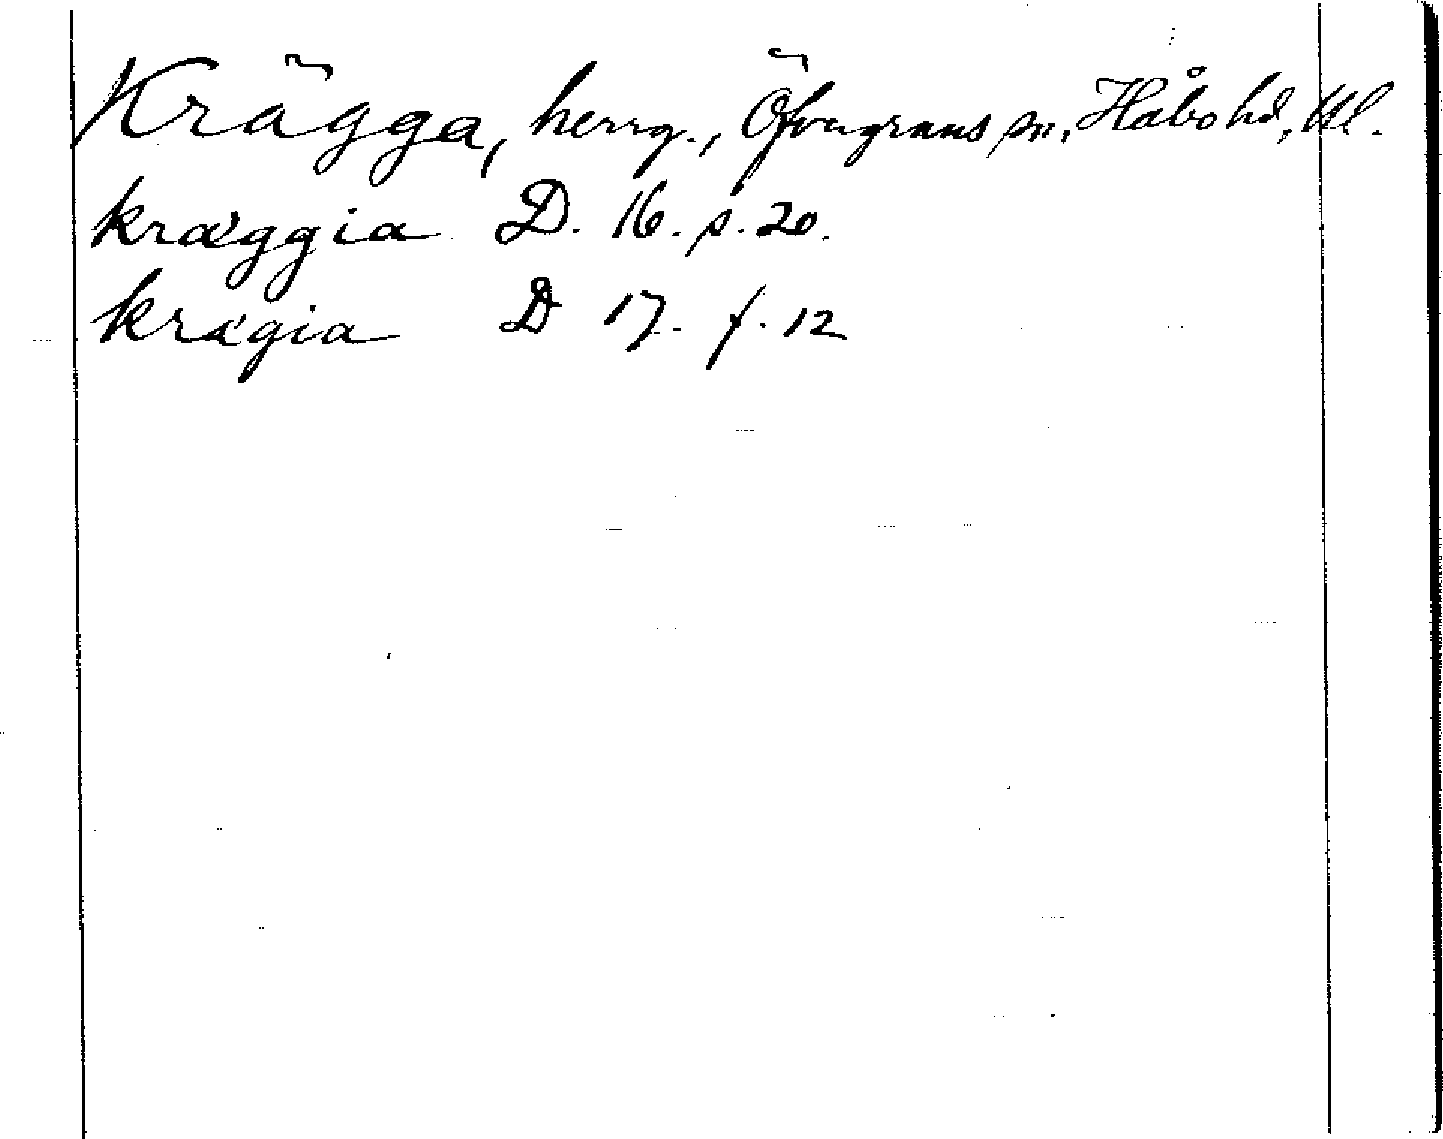 Krägga, herrg., Öfvergrans sn, Håbo hd, Upl.
kræggia D. 16. s. 20.
krægia D 17. f. 12